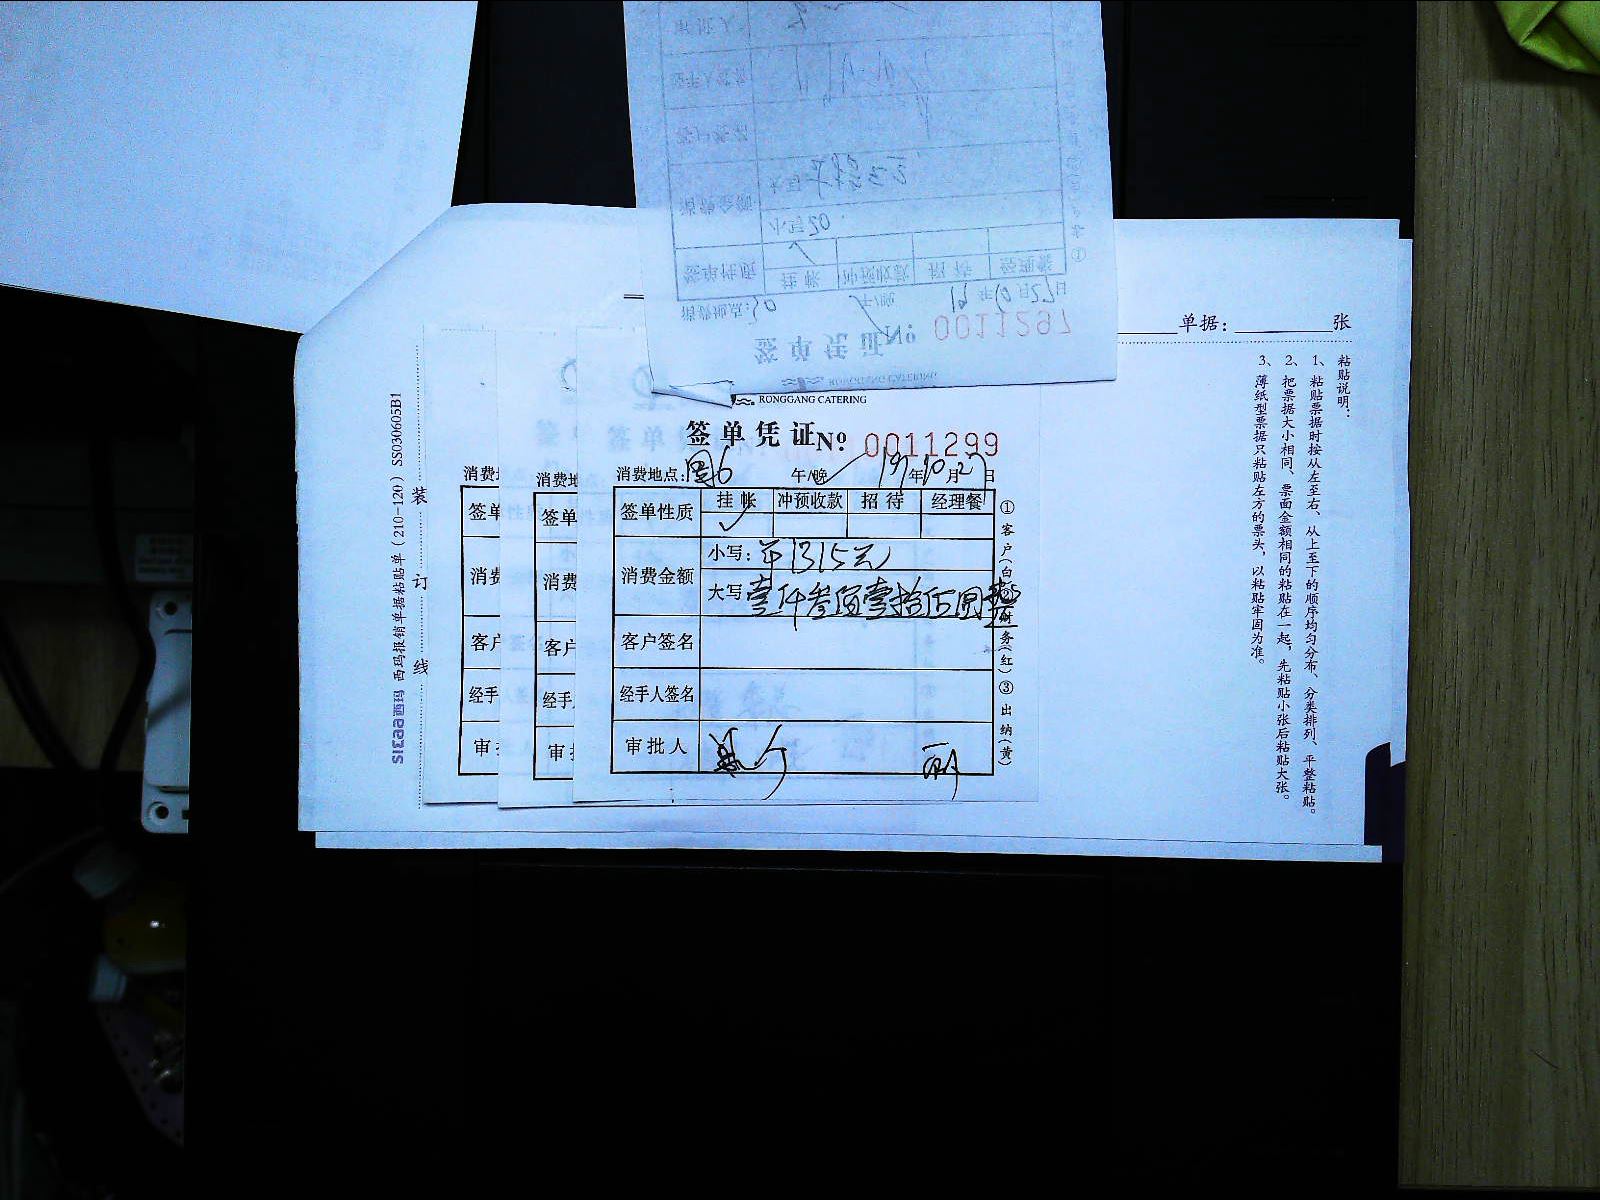 单据：________张
RONGGANG CATERING
签单凭证No: 0011299
消费地点: 国6 午/晚 19年10月27日
签单性质 挂帐 冲预收款 招待 经理餐
消费金额
小写: 1315元
大写 壹仟叁佰壹拾伍圆整
客户签名
经手人签名
审批人
①客户(白 财务(红)③出纳(黄)
消费地
签单
消费
客户
经手
审
消费地
签单
消费
客户
经手
审
装
订
线
SICAA西玛 西玛报销单据粘贴单（210-120）SS030605B1
粘贴说明：
1、粘贴票据时按从左至右、从上至下的顺序均匀分布、分类排列、平整粘贴。
2、把票据大小相同、票面金额相同的粘贴在一起，先粘贴小张后粘贴大张。
3、薄纸型票据只粘贴左方的票头，以粘贴牢固为准。
RONGGANG CATERING
签单凭证No: 0011297
消费地点: 午/晚 年10月27日
签单性质 挂帐 冲预收款 招待 经理餐
消费金额
小写 20
大写
客户签名
经手人签名
审批人